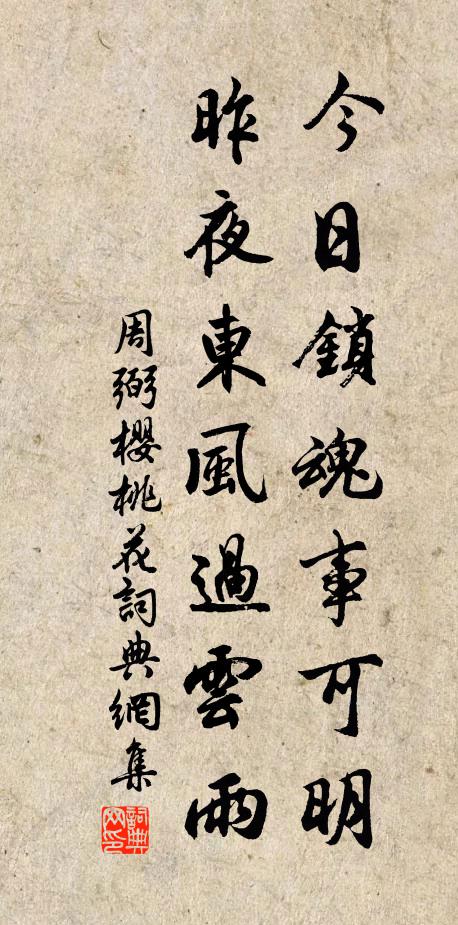 今日鎖魂事可明
昨夜東風過雲雨
周弼櫻桃花詞典網集
詞典網印